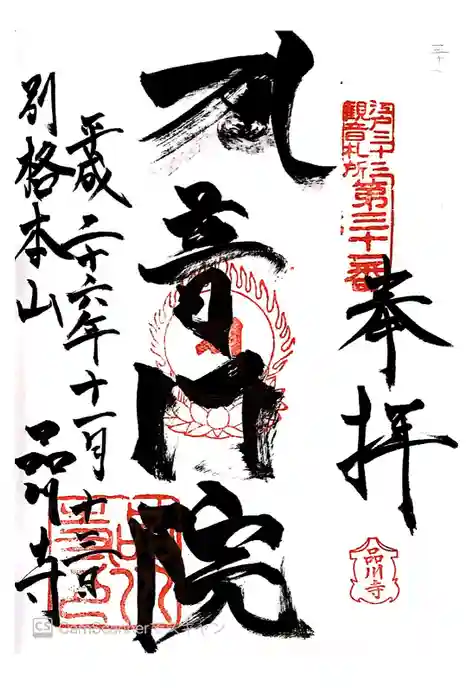 江戸三十三
観音札所
第三十一番
奉拝
品川寺
普門院
平成二十六年十一月十三日
別格本山 品川寺
CS CamScanner でスキャン